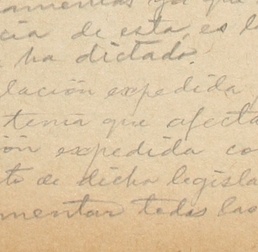 amentos ya que
cia de esta, es l
ha dictado.
lación expedida
tenía que afecta
ón expedida co
to de dicha legisla
mentar todas las